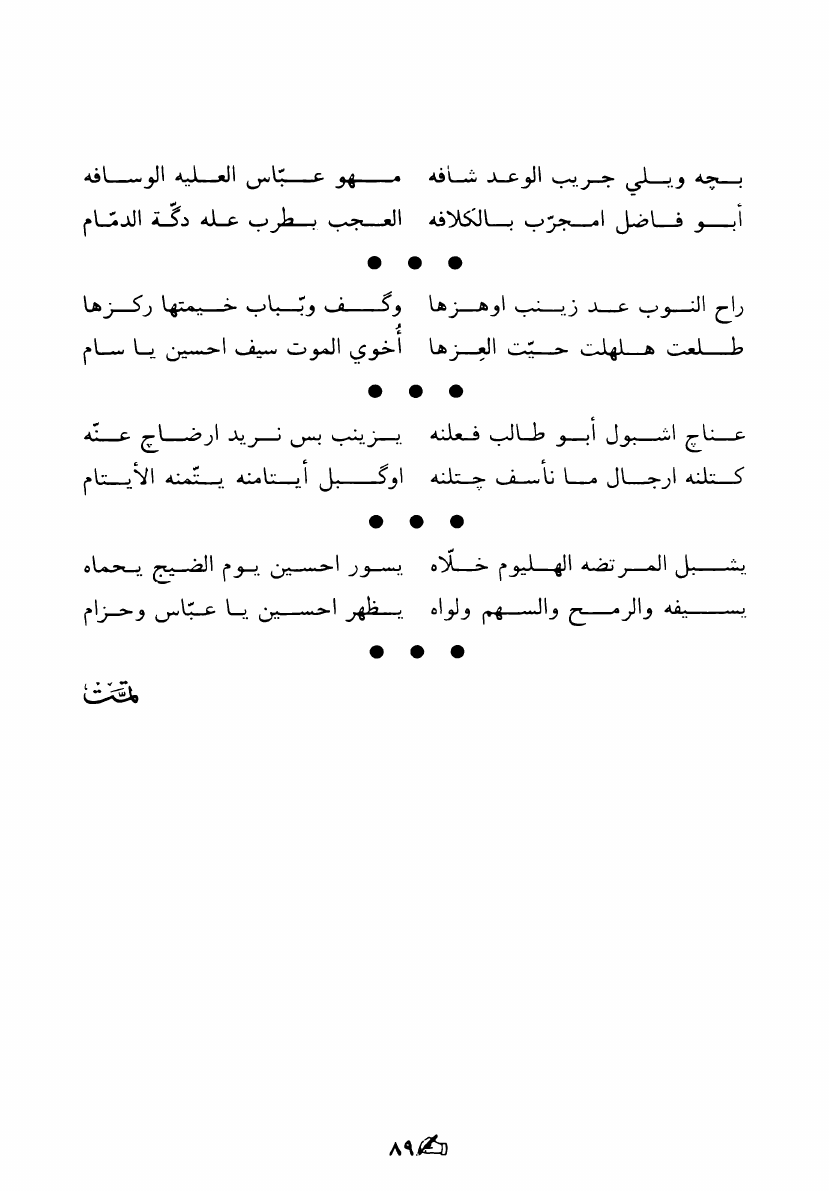 بچه ويلي جريب الوعد شافه مهو عبّاس العليه الوسافه
أبو فاضل امجرّب بالكلافه العجب بطرب عله دگّة الدمّام
● ● ●
راح النوب عد زينب اوهزها وگف وبّاب خيمتها ركزها
طلعت هلهلت حيّت العِزها أُخوي الموت سيف احسين يا سام
● ● ●
عناچ اشبول أبو طالب فعلنه يزينب بس نريد ارضاچ عنّه
كتلنه ارجال ما نأسف چتلنه اوگبل أيتامنه يتّمنه الأيتام
● ● ●
يشبل المرتضه الهليوم خلّاه يسور احسين يوم الضيج يحماه
يسيفه والرمح والسهم ولواه يظهر احسين يا عبّاس وحزام
● ● ●
تمّت
٨٩